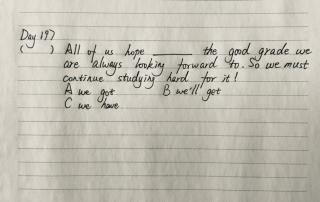 Day 197
( ) All of us hope ______ the good grade we
are always looking forward to. So we must
continue studying hard for it!
A we got B we'll get
C we have